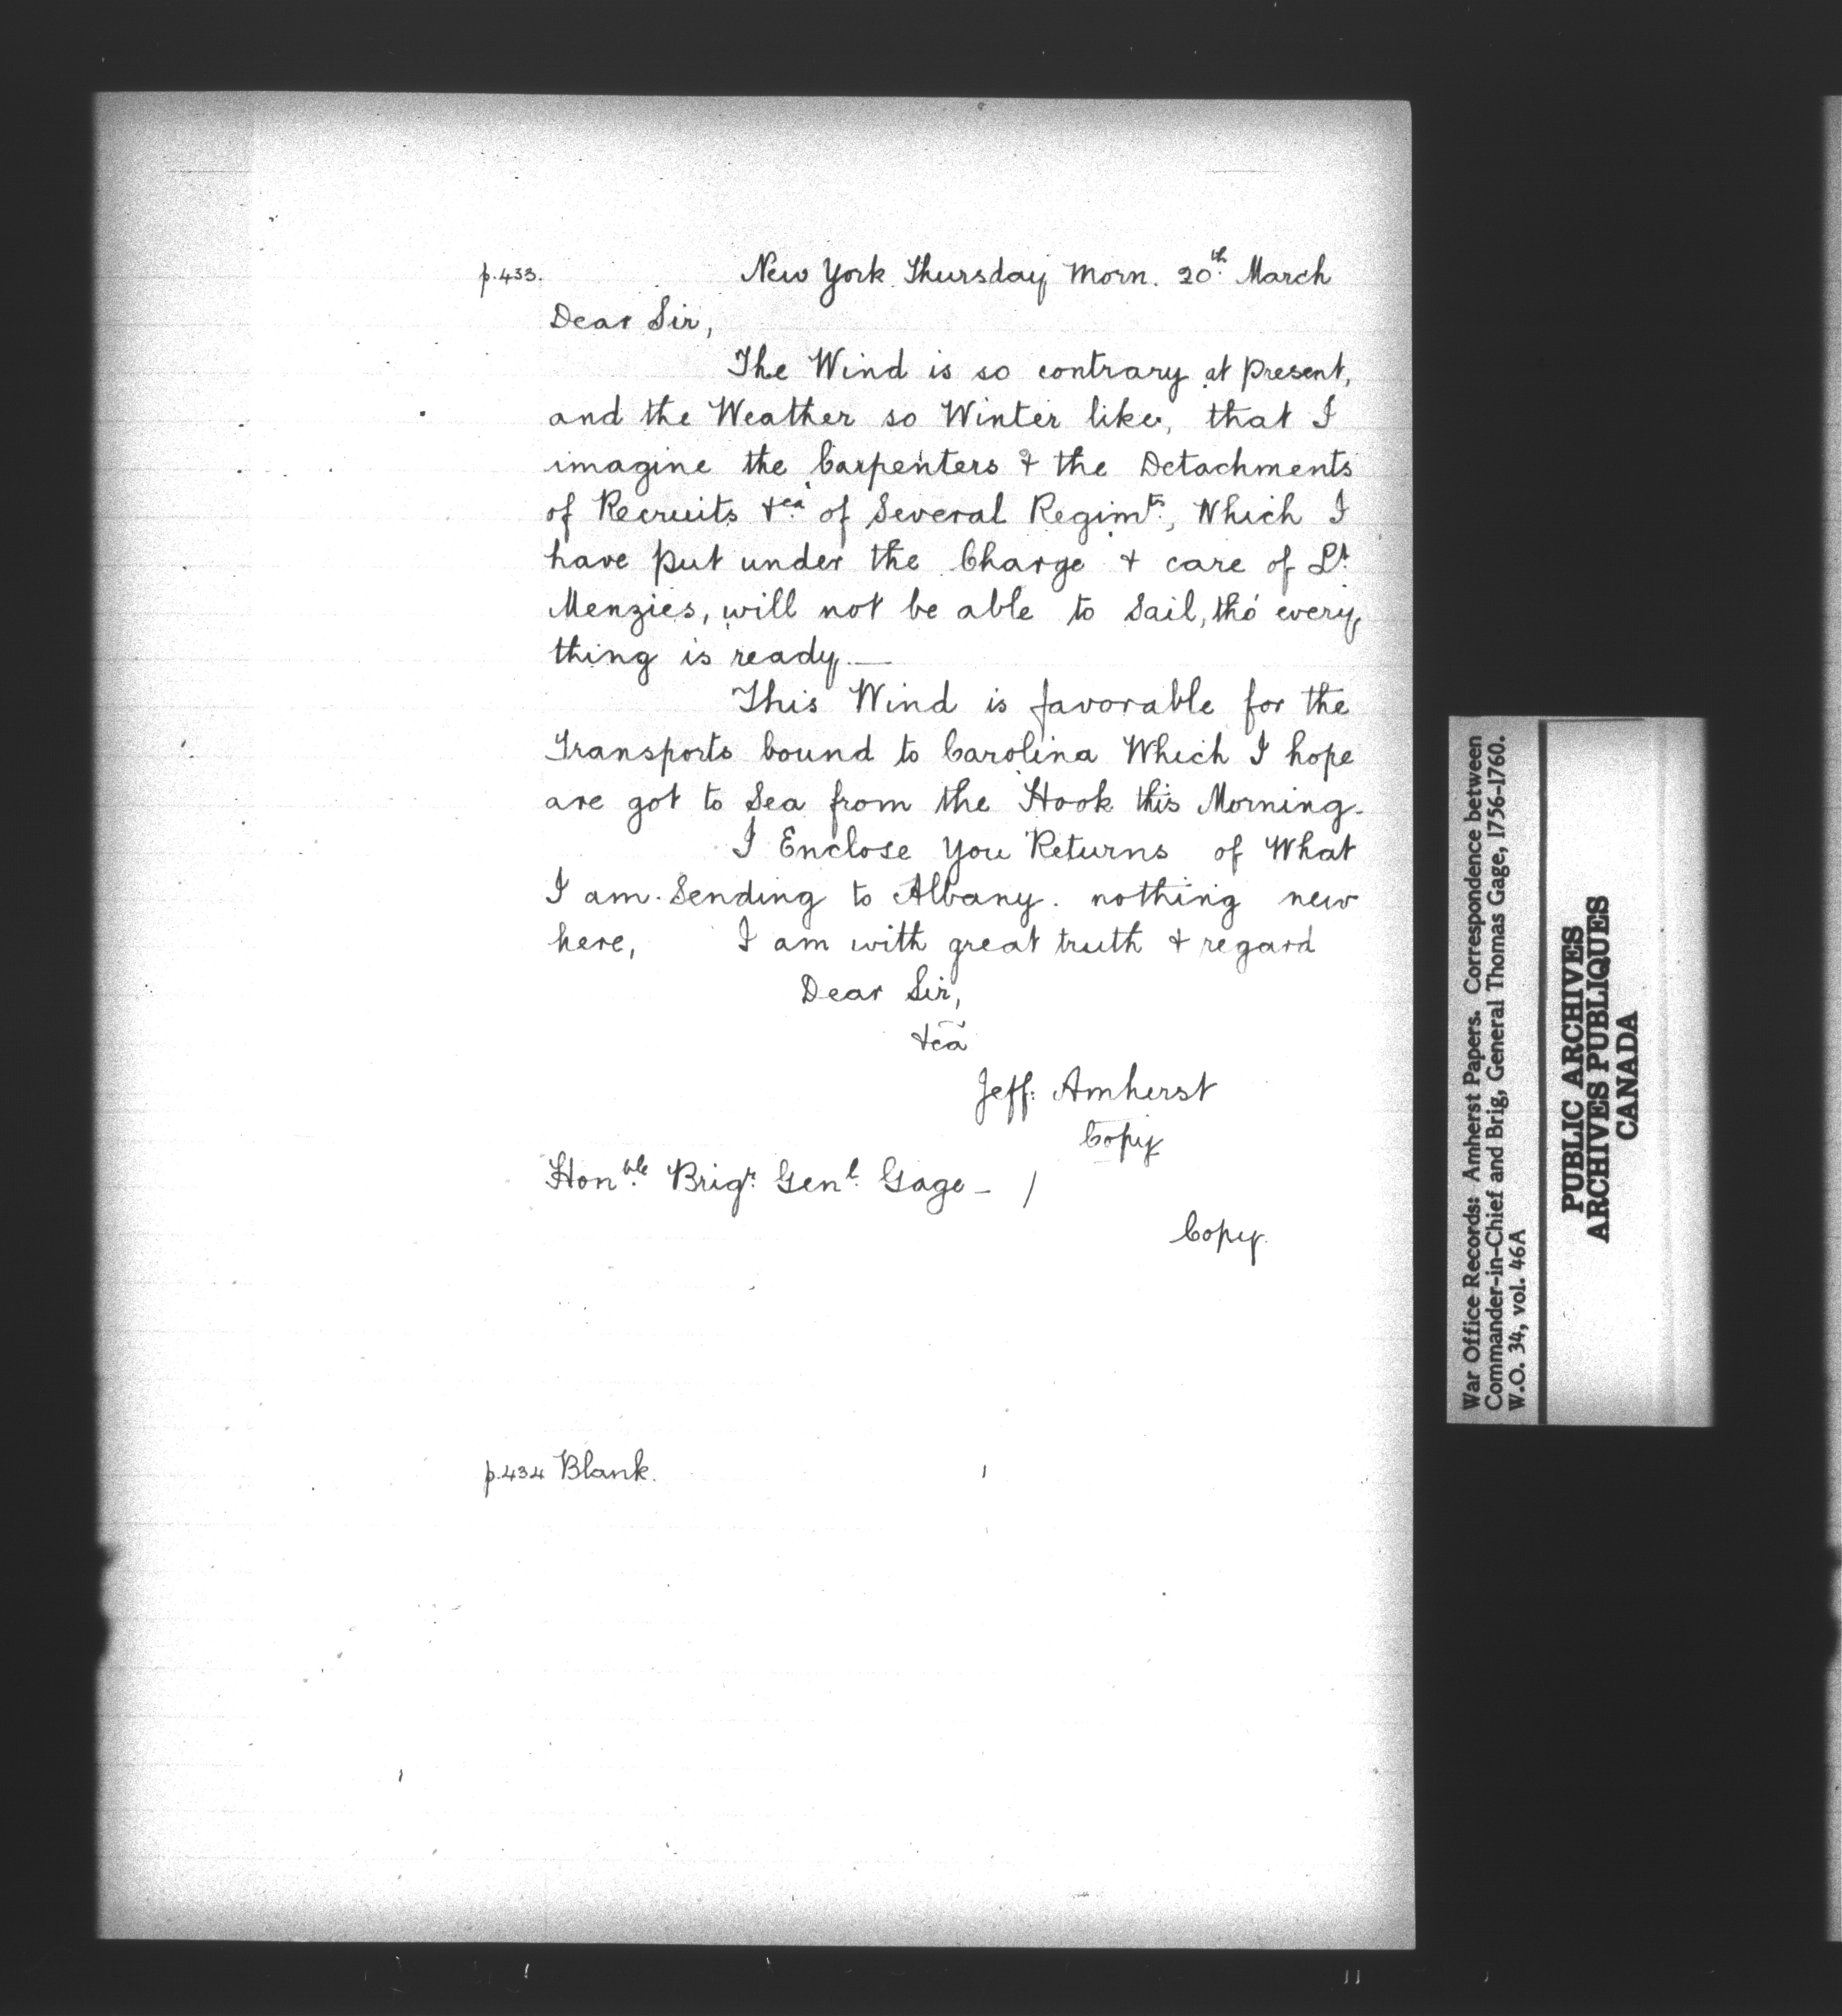 p.433. New York Thursday Morn. 20th March
Dear Sir,
The Wind is so contrary at present,
and the Weather so Winter like, that I
imagine the Carpenters & the Detachments
of Recruits &ca of Several Regimts, Which I
have put under the Charge & care of Lt
Menzies, will not be able to Sail, tho' every
thing is ready.—
This Wind is favorable for the
Transports bound to Carolina Which I hope
are got to Sea from the Hook this Morning.
I Enclose You Returns of What
I am Sending to Albany. nothing new
here, I am with great truth & regard
Dear Sir,
&ca
Jeff: Amherst
Copy
Honble Brigr Genl Gage - /
Copy.
p.434 Blank.
War Office Records: Amherst Papers. Correspondence between
Commander-in-Chief and Brig, General Thomas Gage, 1756-1760.
W.O. 34, vol. 46A
PUBLIC ARCHIVES
ARCHIVES PUBLIQUES
CANADA